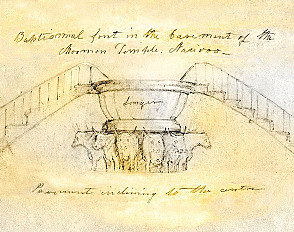 Baptismal font in the basement of the
Mormon Temple. Nauvoo
Pavement inclining to the centre